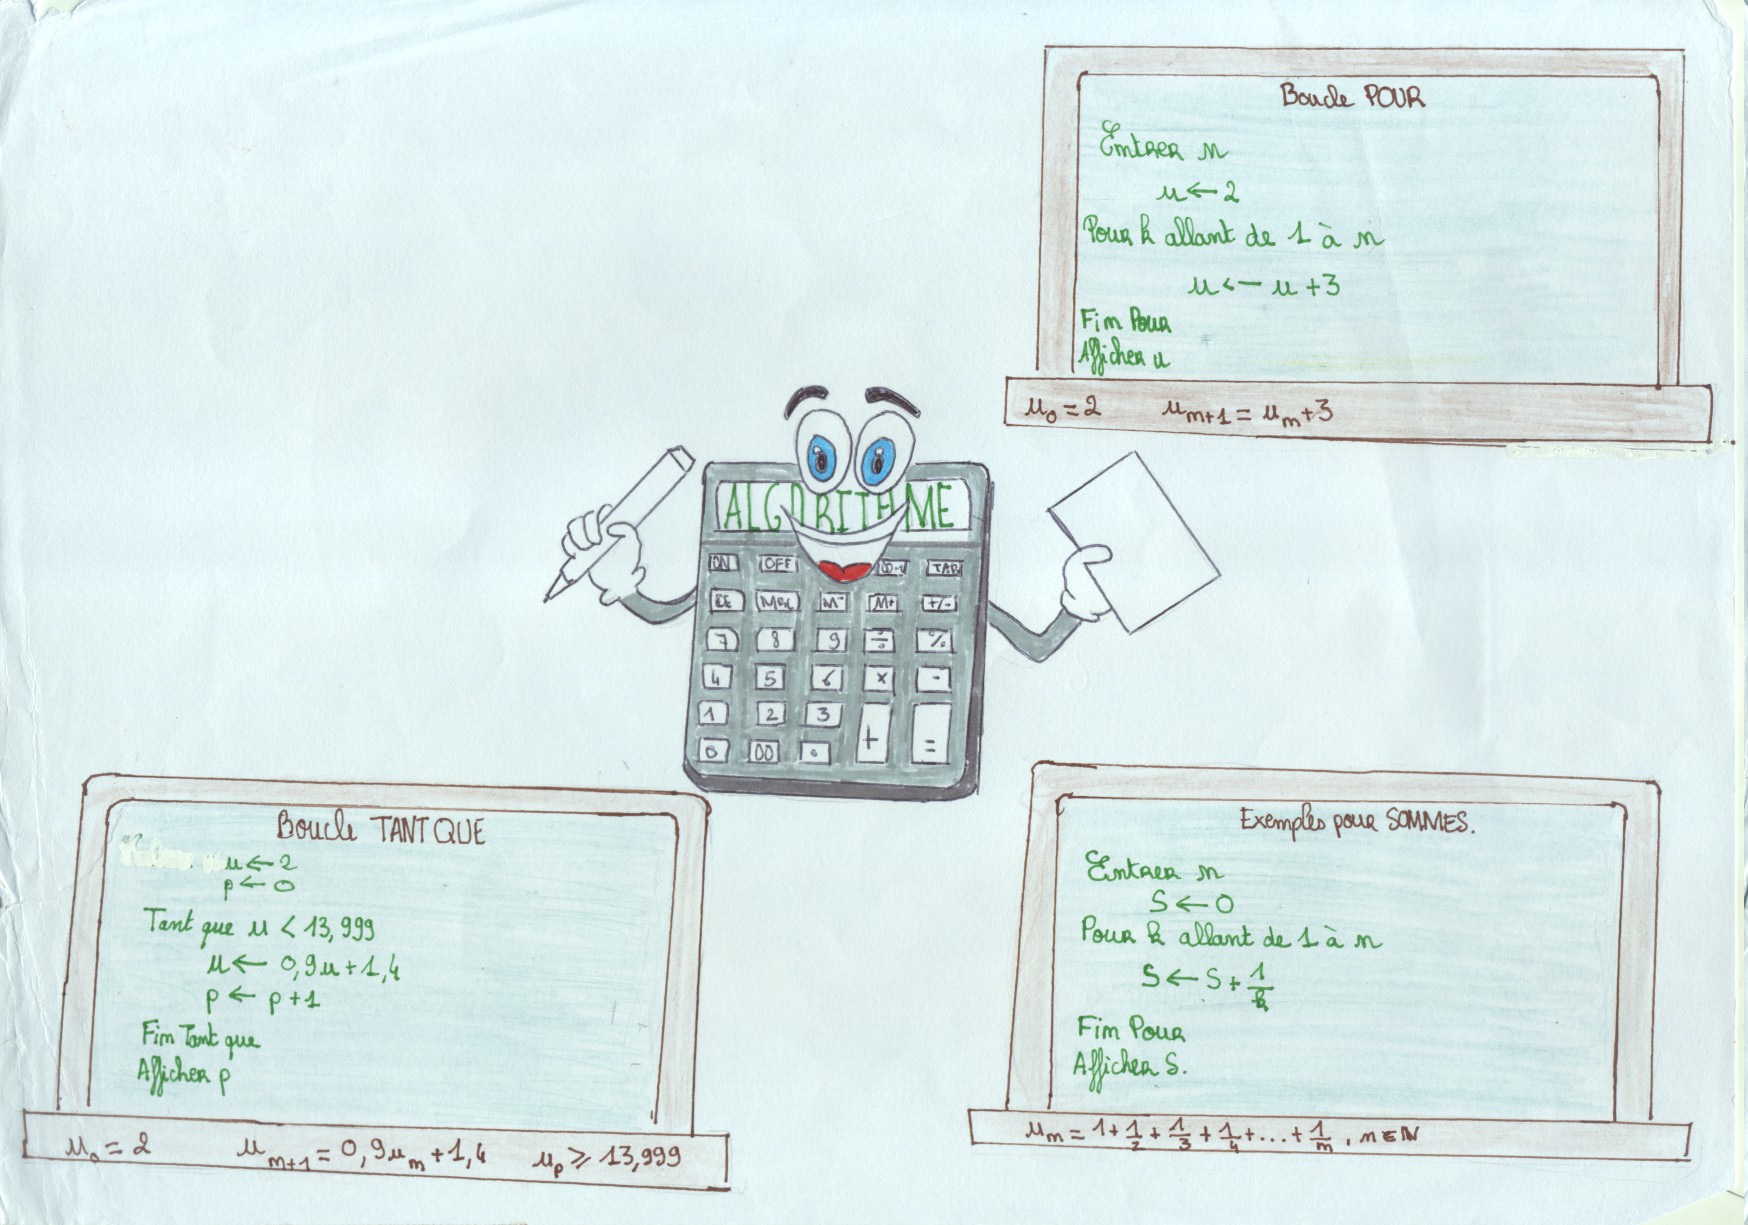 Boucle POUR
Entrer n
u ← 2
Pour k allant de 1 à n
u ← u + 3
Fin Pour
Afficher u
u₀ = 2 uₙ₊₁ = uₙ + 3
ALGORITHME
ON OFF TAB
CE MRC M- M+ +/-
7 8 9 ÷ %
4 5 6 × -
1 2 3
0 00 . + =
Boucle TANT QUE
u ← 2
p ← 0
Tant que u < 13,999
u ← 0,9u + 1,4
p ← p + 1
Fin Tant que
Afficher p
u₀ = 2 uₙ₊₁ = 0,9uₙ + 1,4 uₚ ⩾ 13,999
Exemples pour SOMMES.
Entrer n
S ← 0
Pour k allant de 1 à n
S ← S + 1/k
Fin Pour
Afficher S.
uₙ = 1 + 1/2 + 1/3 + 1/4 + ... + 1/n , n ∈ ℕ